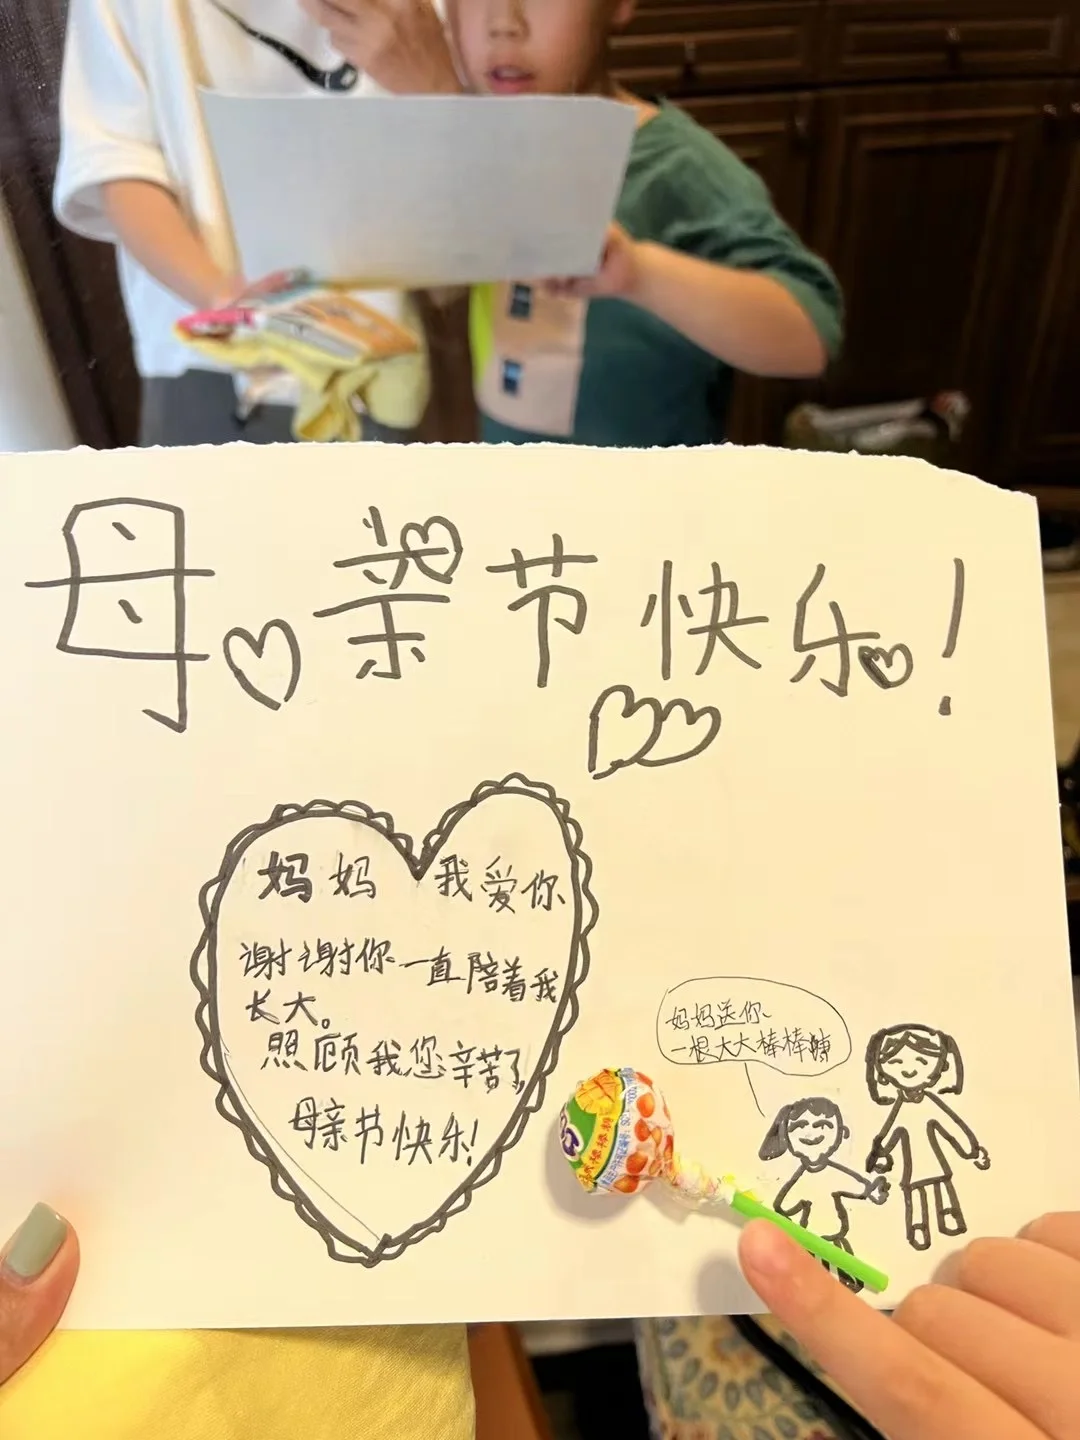 母亲节快乐!
妈妈 我爱你
谢谢你一直陪着我
长大。
照顾我您辛苦了
母亲节快乐!
妈妈送你
一根大大棒棒糖